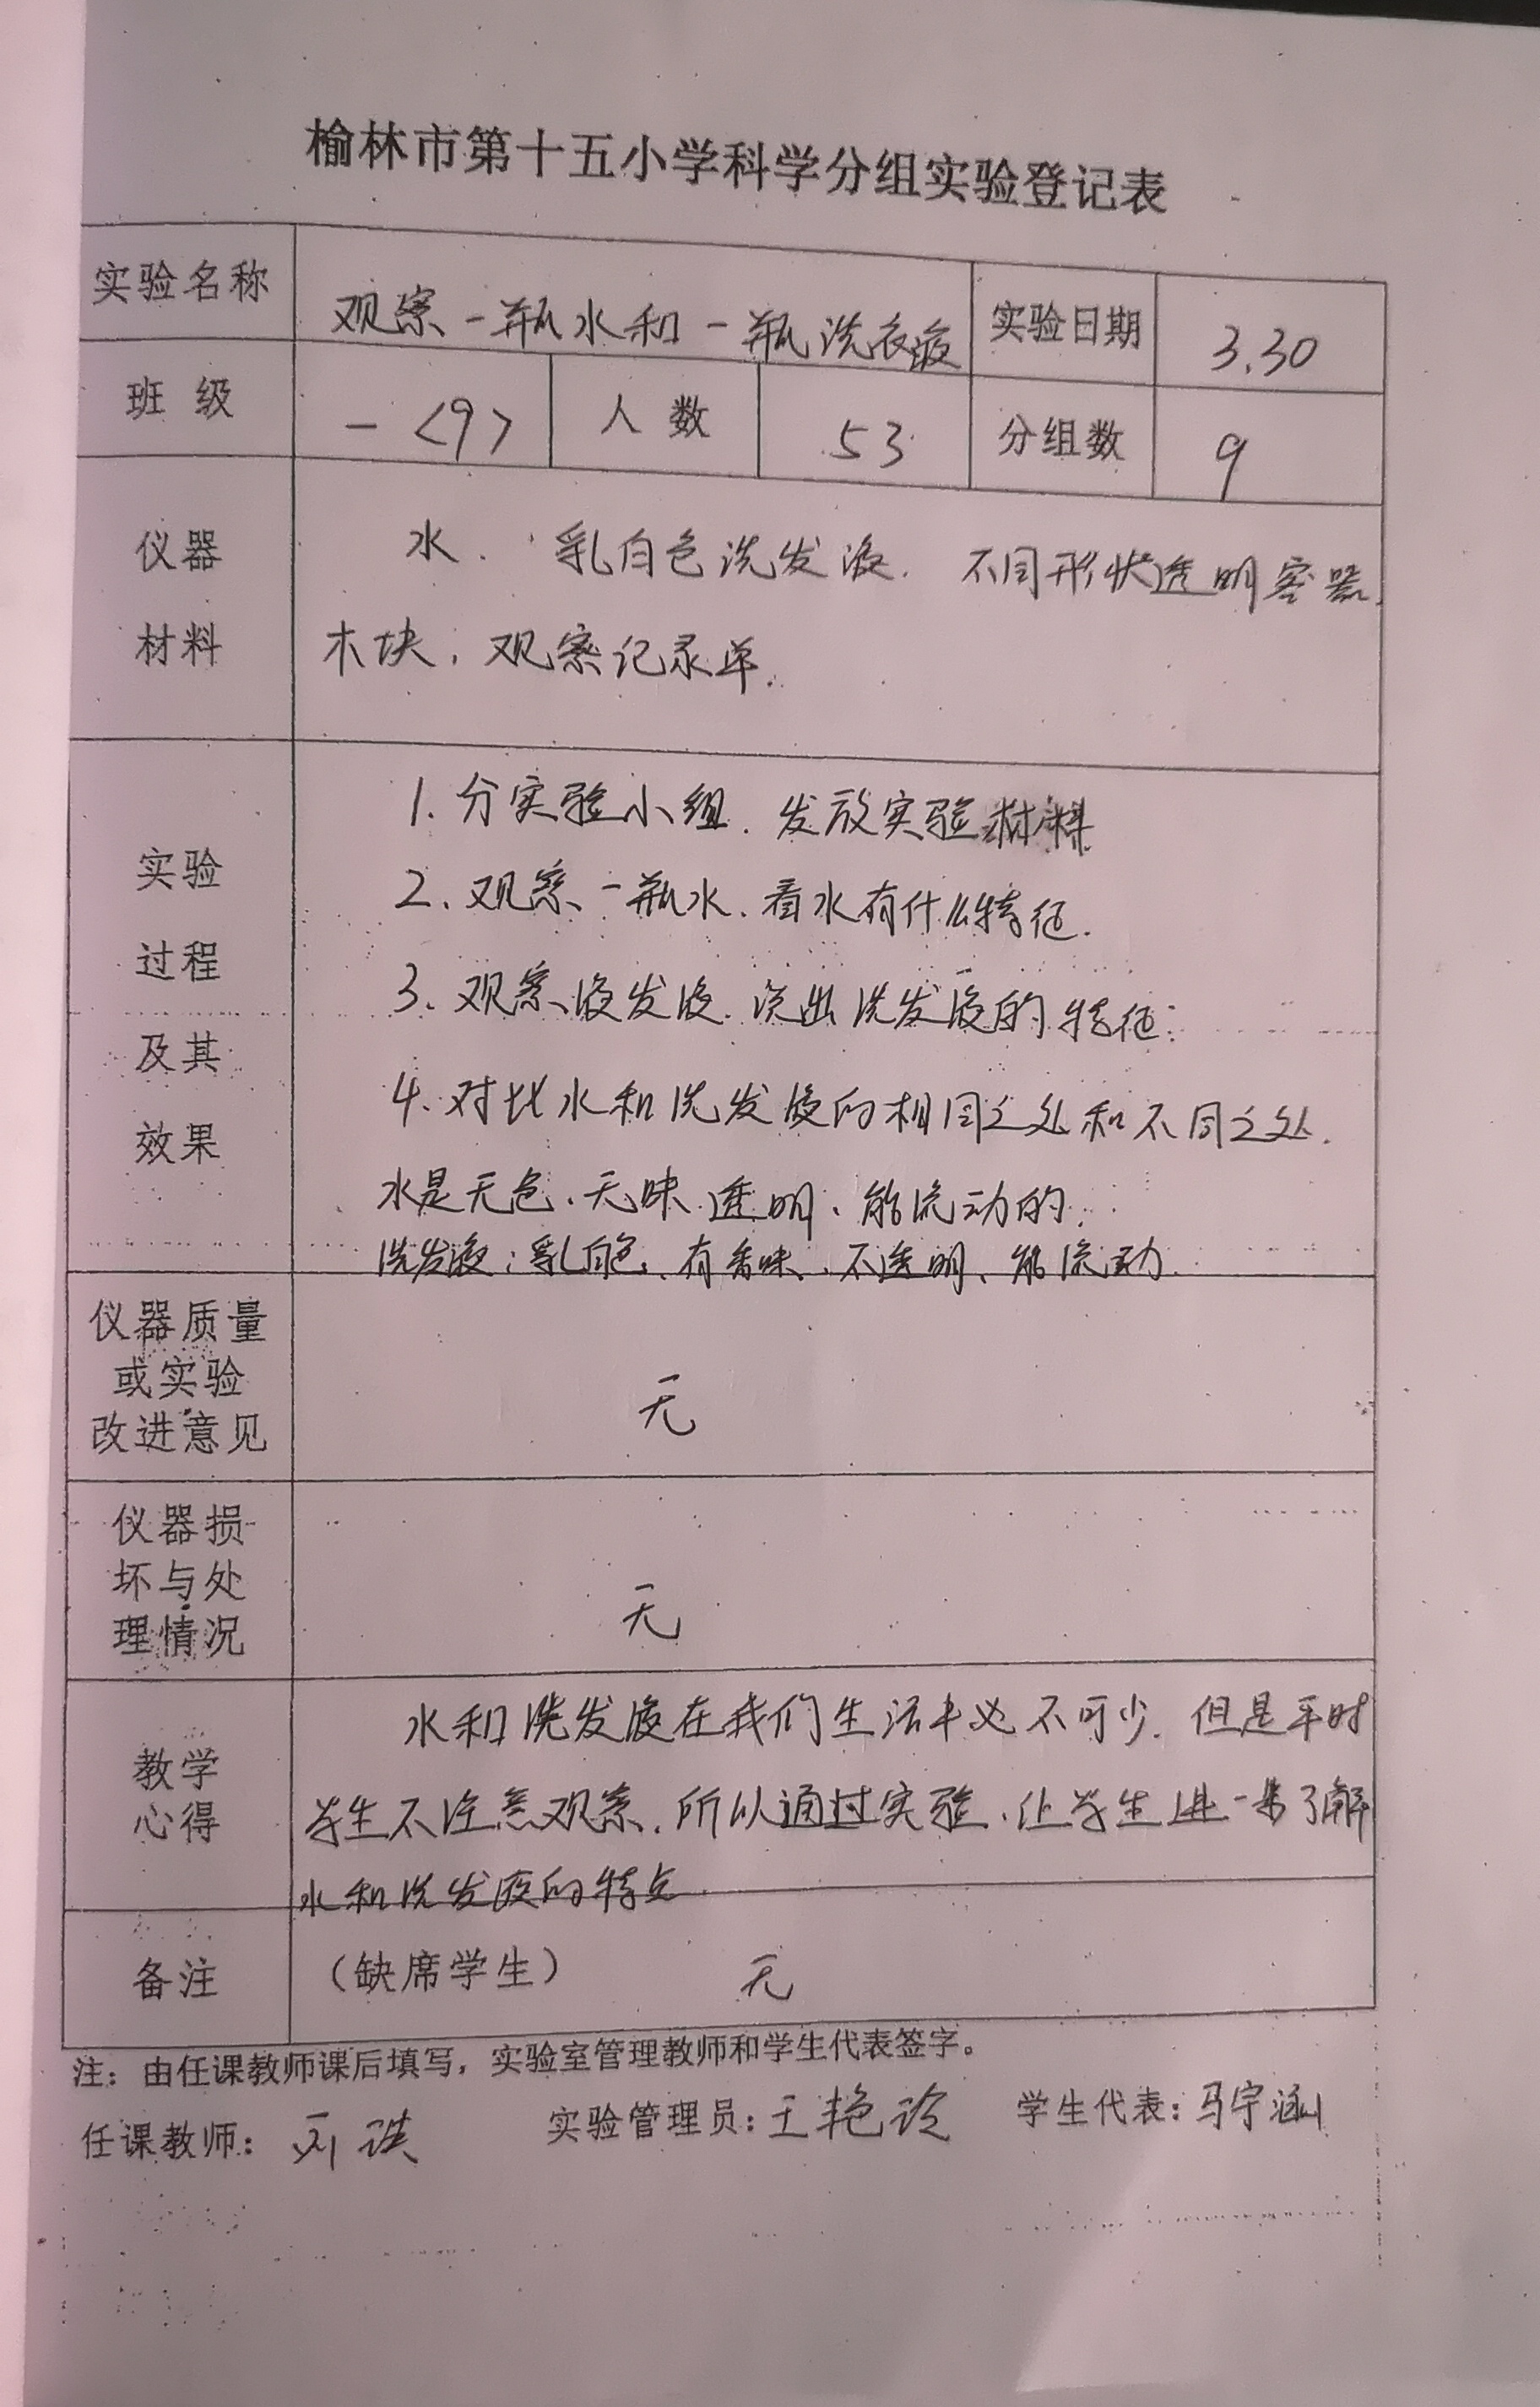 榆林市第十五小学科学分组实验登记表
实验名称 观察一瓶水和一瓶洗衣液 实验日期 3.30
班 级 一<9> 人 数 53 分组数 9
仪器 水. 乳白色洗发液. 不同形状透明容器.
材料 木块, 观察记录单.
1. 分实验小组. 发放实验材料
实验 2. 观察一瓶水. 看水有什么特征.
过程 3. 观察液发液. 说出洗发液的特征:
及其 4. 对比水和洗发液的相同之处和不同之处.
效果 水是无色、无味 透明、能流动的.
洗发液: 乳白色、有香味、不透明、能流动.
仪器质量
或实验 无
改进意见
仪器损
坏与处
理情况 无
水和洗发液在我们生活中必不可少. 但是平时
教学
心得 学生不注意观察, 所以通过实验, 让学生进一步了解
水和洗发液的特点.
备注 (缺席学生) 无
注: 由任课教师课后填写, 实验室管理教师和学生代表签字。
任课教师: 刘 实验管理员: 王艳玲 学生代表: 马宇涵